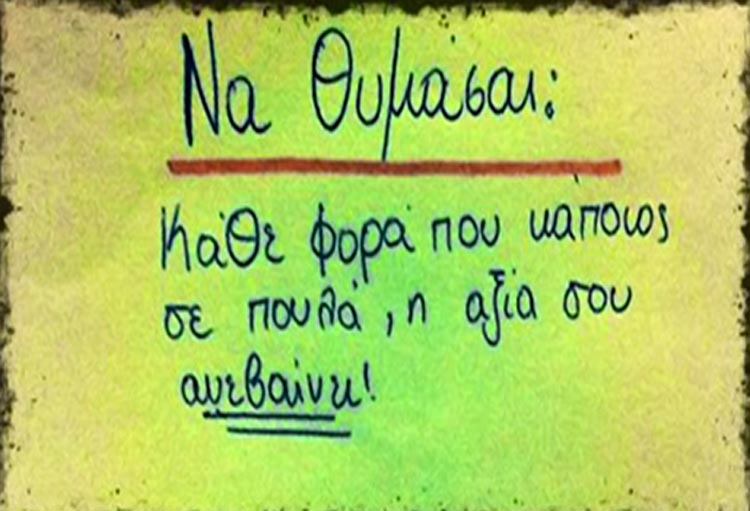 Να θυμάσαι:
Κάθε φορά που κάποιος
σε πουλά, η αξία σου
ανεβαίνει!